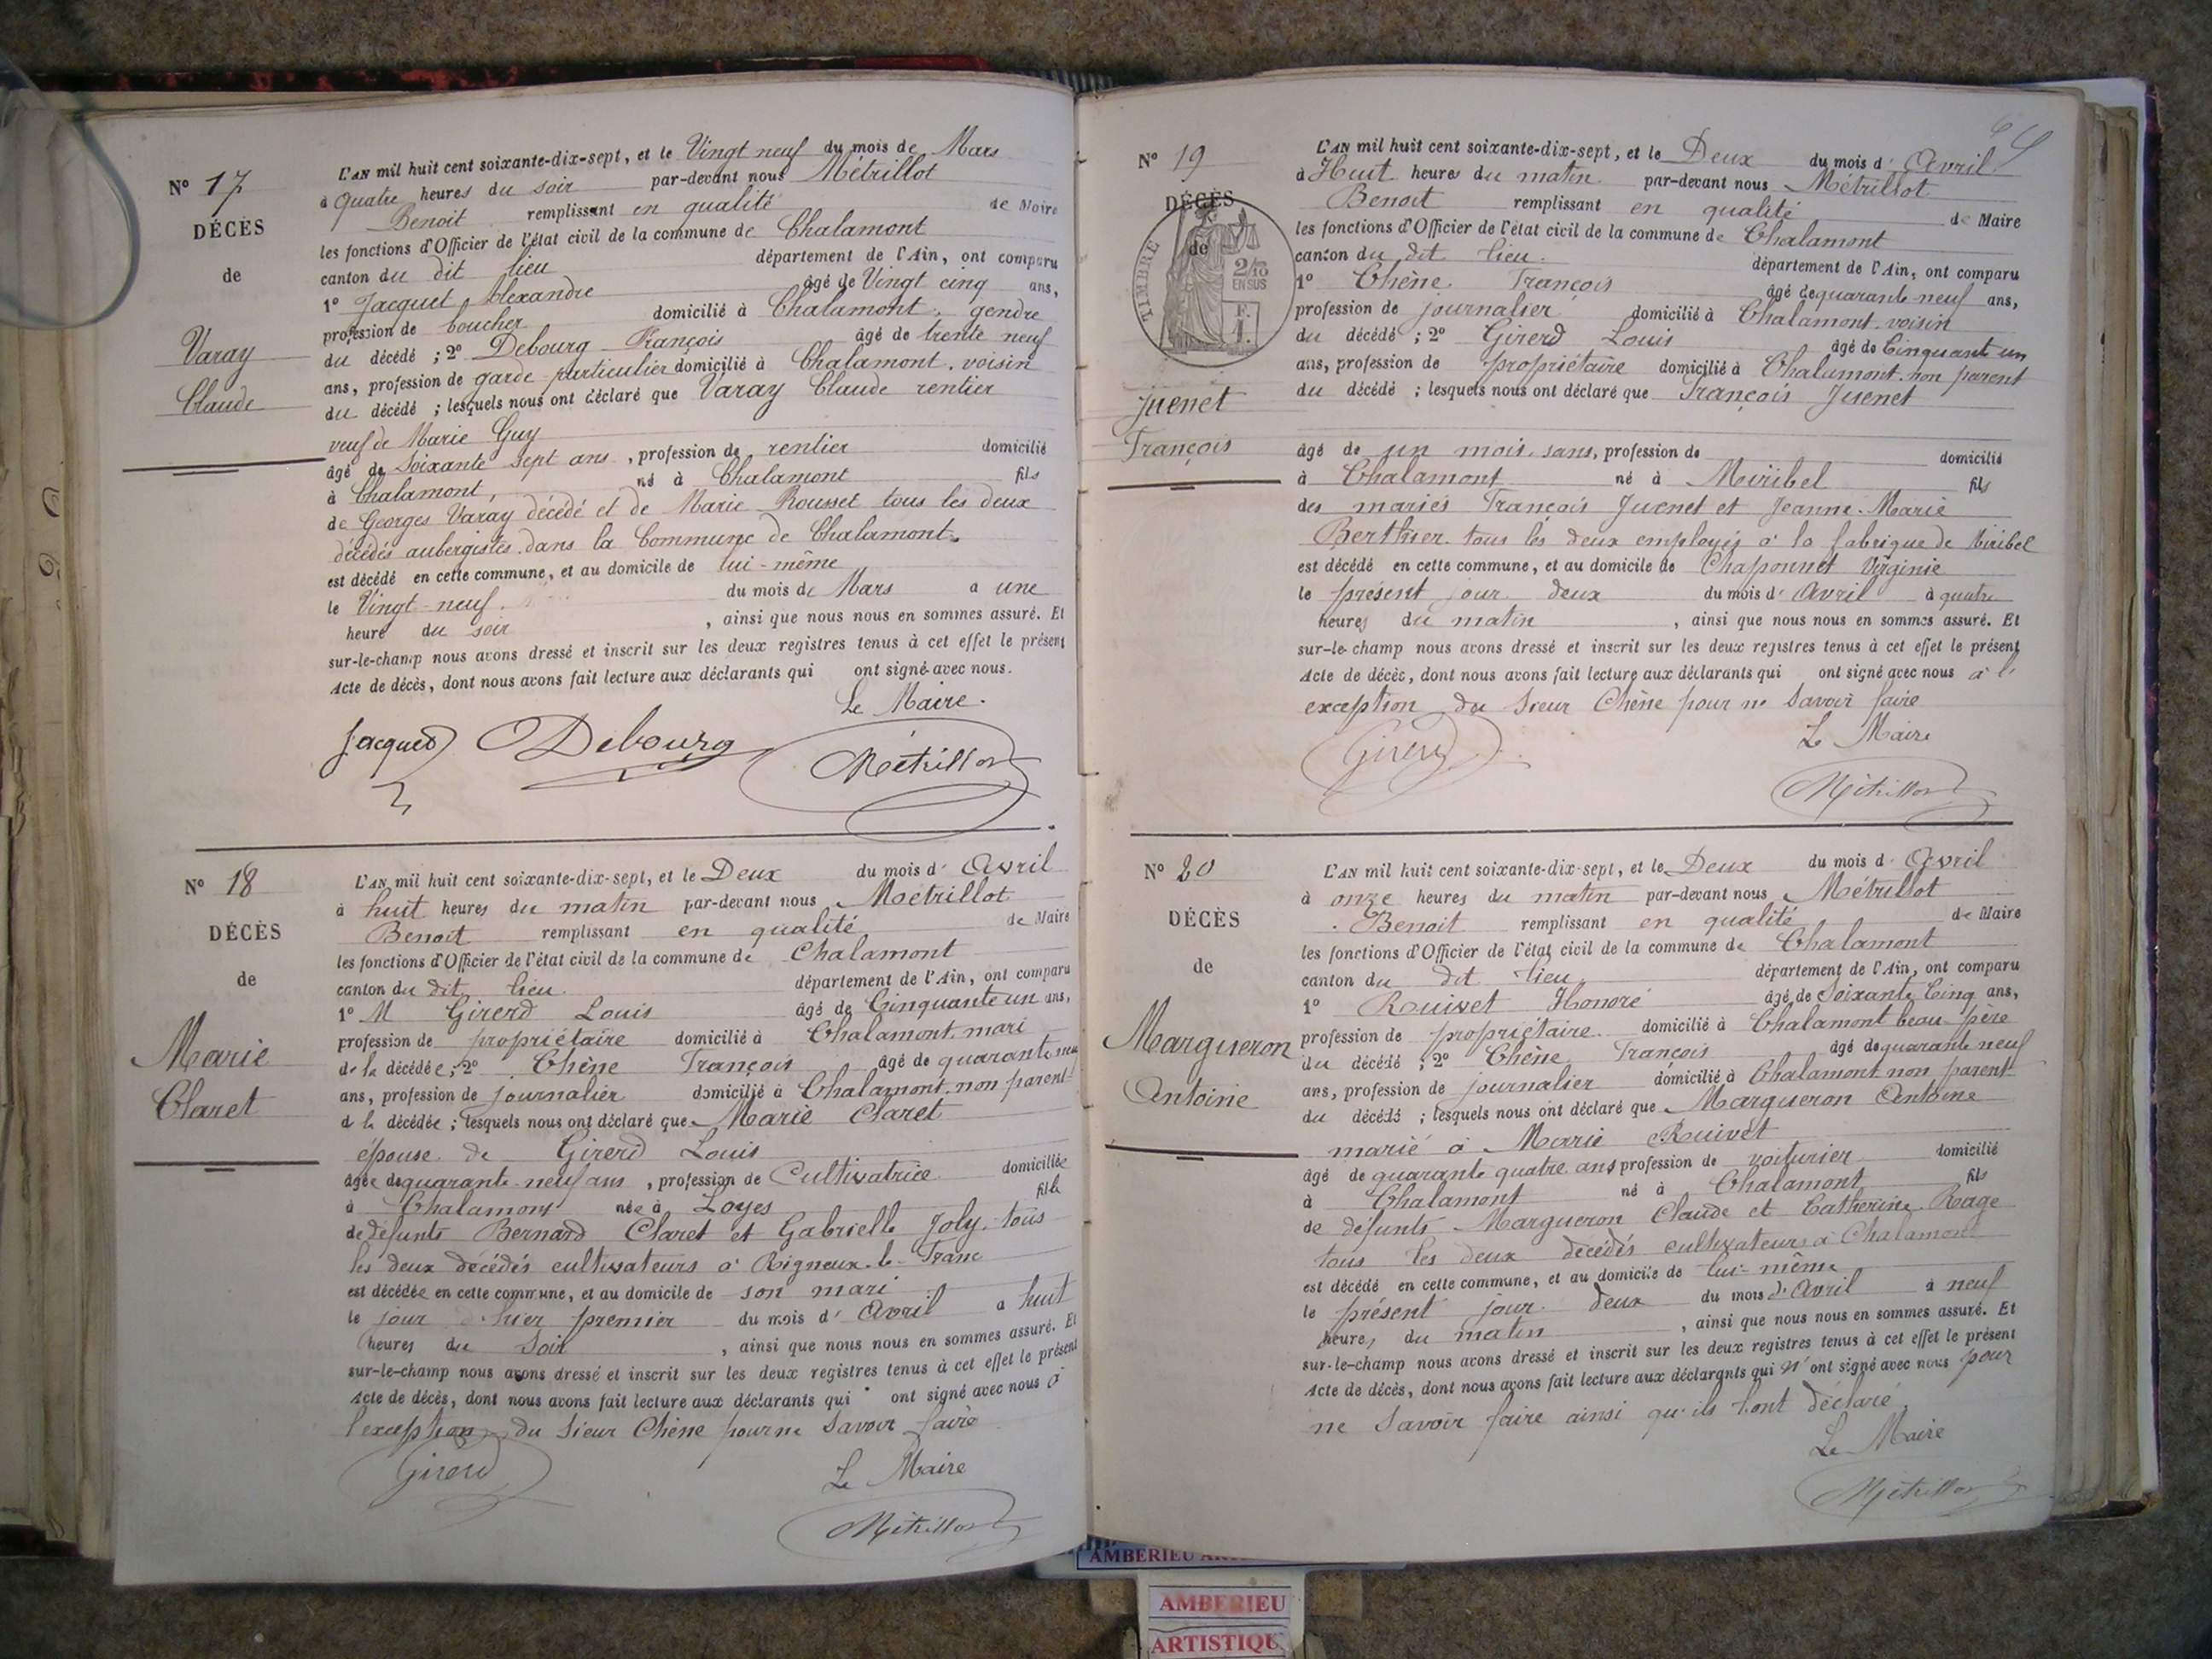 N° 17
DÉCÈS
de
Varay
Claude
L'AN mil huit cent soixante-dix-sept, et le Vingt neuf du mois de Mars
à quatre heures du soir par-devant nous Métrillot
Benoit remplissant en qualité de Maire
les fonctions d'Officier de l'état civil de la commune de Chalamont
canton du dit lieu département de l'Ain, ont comparu
1° Jacquet Alexandre âgé de Vingt cinq ans,
profession de boucher domicilié à Chalamont, gendre
du décédé ; 2° Debourg François âgé de trente neuf
ans, profession de garde particulier domicilié à Chalamont, voisin
du décédé ; lesquels nous ont déclaré que Varay Claude rentier
veuf de Marie Guy
âgé de Soixante sept ans, profession de rentier domicilié
à Chalamont, né à Chalamont fils
de Georges Varay décédé et de Marie Rousset tous les deux
décédés aubergistes dans la Commune de Chalamont
est décédé en cette commune, et au domicile de lui-même
le Vingt-neuf du mois de Mars a une
heure du soir, ainsi que nous nous en sommes assuré. Et
sur-le-champ nous avons dressé et inscrit sur les deux registres tenus à cet effet le présent
Acte de décès, dont nous avons fait lecture aux déclarants qui ont signé avec nous.
Le Maire.
Jacquet Debourg Métrillot
N° 18
DÉCÈS
de
Marie
Claret
L'AN mil huit cent soixante-dix-sept, et le Deux du mois d' Avril
à huit heures du matin par-devant nous Métrillot
Benoit remplissant en qualité de Maire
les fonctions d'Officier de l'état civil de la commune de Chalamont
canton du dit lieu département de l'Ain, ont comparu
1° M Girerd Louis âgé de Cinquante un ans,
profession de propriétaire domicilié à Chalamont, mari
de la décédée ; 2° Chêne François âgé de quarante neuf
ans, profession de journalier domicilié à Chalamont, non parent
de la décédée ; lesquels nous ont déclaré que Marie Claret
épouse de Girerd Louis
âgée de quarante-neuf ans, profession de Cultivatrice domiciliée
à Chalamont née à Loyes fille
de défunts Bernard Claret et Gabrielle Joly, tous
les deux décédés cultivateurs à Rigneux-le-Franc
est décédée en cette commune, et au domicile de son mari
le jour d'hier premier du mois d' Avril a huit
heures du Soir, ainsi que nous nous en sommes assuré. Et
sur-le-champ nous avons dressé et inscrit sur les deux registres tenus à cet effet le présent
Acte de décès, dont nous avons fait lecture aux déclarants qui ont signé avec nous à
l'exception du Sieur Chêne pour ne Savoir faire
Le Maire
Girerd Métrillot
N° 19
DÉCÈS
de
TIMBRE
2/10
EN SUS
F.
1.
Juenet
François
L'AN mil huit cent soixante-dix-sept, et le Deux du mois d' Avril
à Huit heures du matin par-devant nous Métrillot
Benoit remplissant en qualité de Maire
les fonctions d'Officier de l'état civil de la commune de Chalamont
canton du dit lieu département de l'Ain, ont comparu
1° Chêne François âgé de quarante neuf ans,
profession de journalier domicilié à Chalamont voisin
du décédé ; 2° Girerd Louis âgé de Cinquante un
ans, profession de propriétaire domicilié à Chalamont, non parent
du décédé ; lesquels nous ont déclaré que François Juenet
âgé de un mois, sans, profession de domicilié
à Chalamont né à Miribel fils
des mariés François Juenet et Jeanne-Marie
Berthier tous les deux employés à la fabrique de Miribel
est décédé en cette commune, et au domicile de Chaponnet Virginie
le présent jour deux du mois d' Avril à quatre
heures du matin, ainsi que nous nous en sommes assuré. Et
sur-le-champ nous avons dressé et inscrit sur les deux registres tenus à cet effet le présent
Acte de décès, dont nous avons fait lecture aux déclarants qui ont signé avec nous à l'
exception du Sieur Chêne pour ne Savoir faire
Le Maire
Girerd Métrillot
N° 20
DÉCÈS
de
Margueron
Antoine
L'AN mil huit cent soixante-dix-sept, et le Deux du mois d' Avril
à onze heures du matin par-devant nous Métrillot
Benoit remplissant en qualité de Maire
les fonctions d'Officier de l'état civil de la commune de Chalamont
canton du dit lieu département de l'Ain, ont comparu
1° Rouivet Honoré âgé de Soixante Cinq ans,
profession de propriétaire domicilié à Chalamont beau père
du décédé ; 2° Chêne François âgé de quarante neuf
ans, profession de journalier domicilié à Chalamont non parent
du décédé ; lesquels nous ont déclaré que Margueron Antoine
marié à Marie Rouivet
âgé de quarante quatre ans profession de voiturier domicilié
à Chalamont né à Chalamont fils
de défunts Margueron Claude et Catherine Rage
tous les deux décédés cultivateurs à Chalamont
est décédé en cette commune, et au domicile de lui-même
le présent jour deux du mois d' Avril à neuf
heures du matin, ainsi que nous nous en sommes assuré. Et
sur-le-champ nous avons dressé et inscrit sur les deux registres tenus à cet effet le présent
Acte de décès, dont nous avons fait lecture aux déclarants qui n'ont signé avec nous pour
ne Savoir faire ainsi qu'ils l'ont déclaré.
Le Maire
Métrillot
AMBERIEU
AMBERIEU
ARTISTIQU